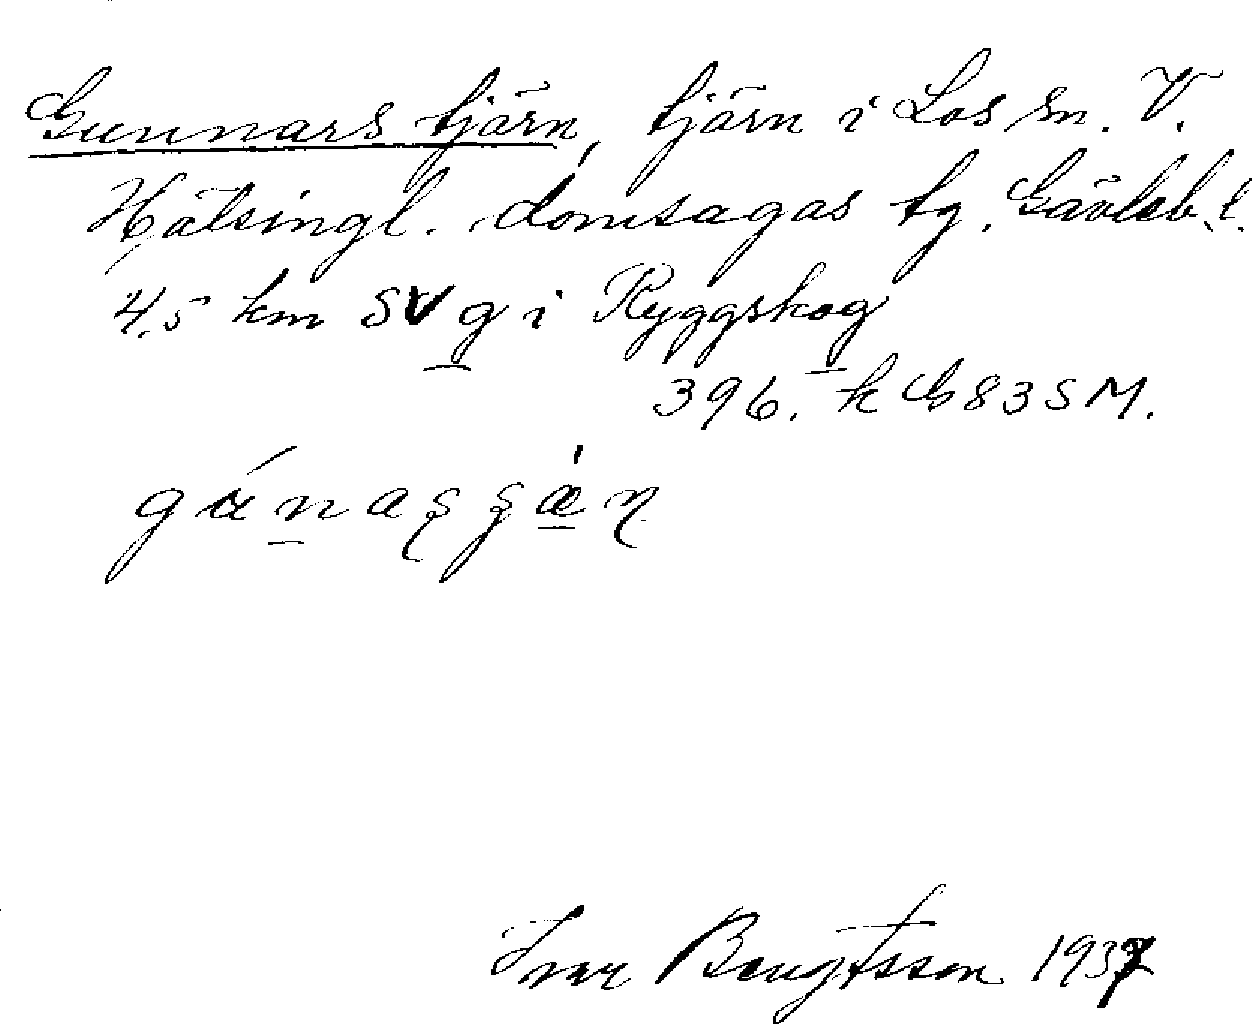 Gunnars tjärn, tjärn i Los sn. V.
Hälsingl. domsagas tg. Gävleb. l.
4,5 km SV g i Ryggskog
396. k G 83 S M.
Ivar Bengtsson 1937